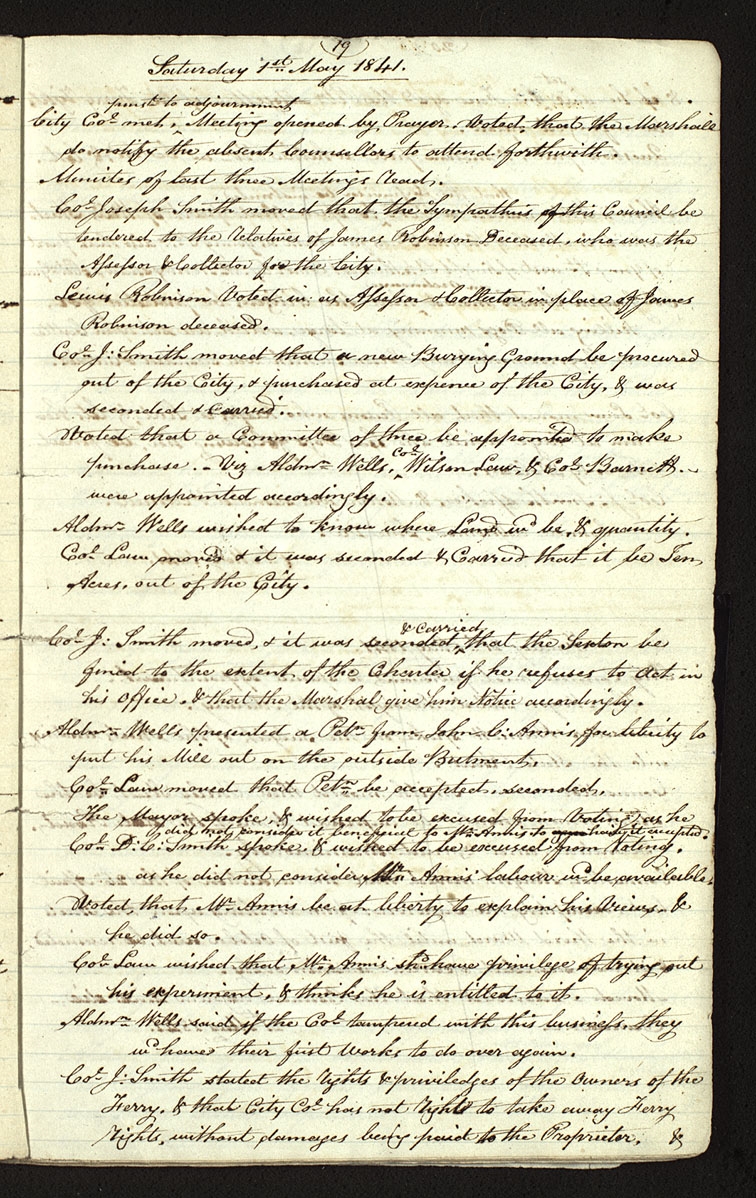 19
Saturday 1st May 1841.
purst to adjournment
City Col met, ^ Meeting opened by Prayer. Voted, that the Marshall
do notify the absent Counsellors to attend forthwith.
Minutes of last three Meetings read.
Col Joseph Smith moved that the Sympathies of this Council be
tendered to the relatives of James Robinson Deceased, who was the
Assessor & Collector for the City.
Lewis Robinson Voted in as Assessor & Collector in place of James
Robinson deceased.
Cor J: Smith moved that a new Burying Ground be procured
out of the City, & purchased at expence of the City, & was
seconded & carried.
Voted that a Committee of three be appointed to make
purchase. - Viz Aldmn Wells, ^ Cor Wilson Law, & Cor Barnett -
were appointed accordingly.
Aldmn Wells wished to know where Land wd be, & quantity.
Cor Law moved & it was seconded & Carried that it be Ten
Acres, out of the City.
& carried
Cor J: Smith moved, & it was seconded ^ that the Sexton be
fined to the extent of the Charter if he refuses to act in
his office, & that the Marshal give him Notice accordingly.
Aldmn Wells presented a Petn from John C. Annis, for liberty to
put his Mill out on the outside Butment.
Cor Law moved that Petn be accepted, seconded.
The Mayor spoke, & wished to be excused from Voting, as he
did not consider it beneficial to Mr Annis to having it accepted.
Cor D: C: Smith spoke, & wished to be excused from Voting,
as he did not consider Mr Annis' labour wd be available.
Voted, that Mr Annis be at liberty to explain his Views. &
he did so.
Cor Law wished that Mr Annis shd have privilege of trying out
his experiment, & thinks he is entitled to it.
Aldmn Wells said if the Col tampered with this business, they
wd have their first works to do over again.
Cor J: Smith stated the rights & priviledges of the Owners of the
Ferry, & that City Col has not right to take away Ferry
rights, without damages being paid to the Proprietor. &